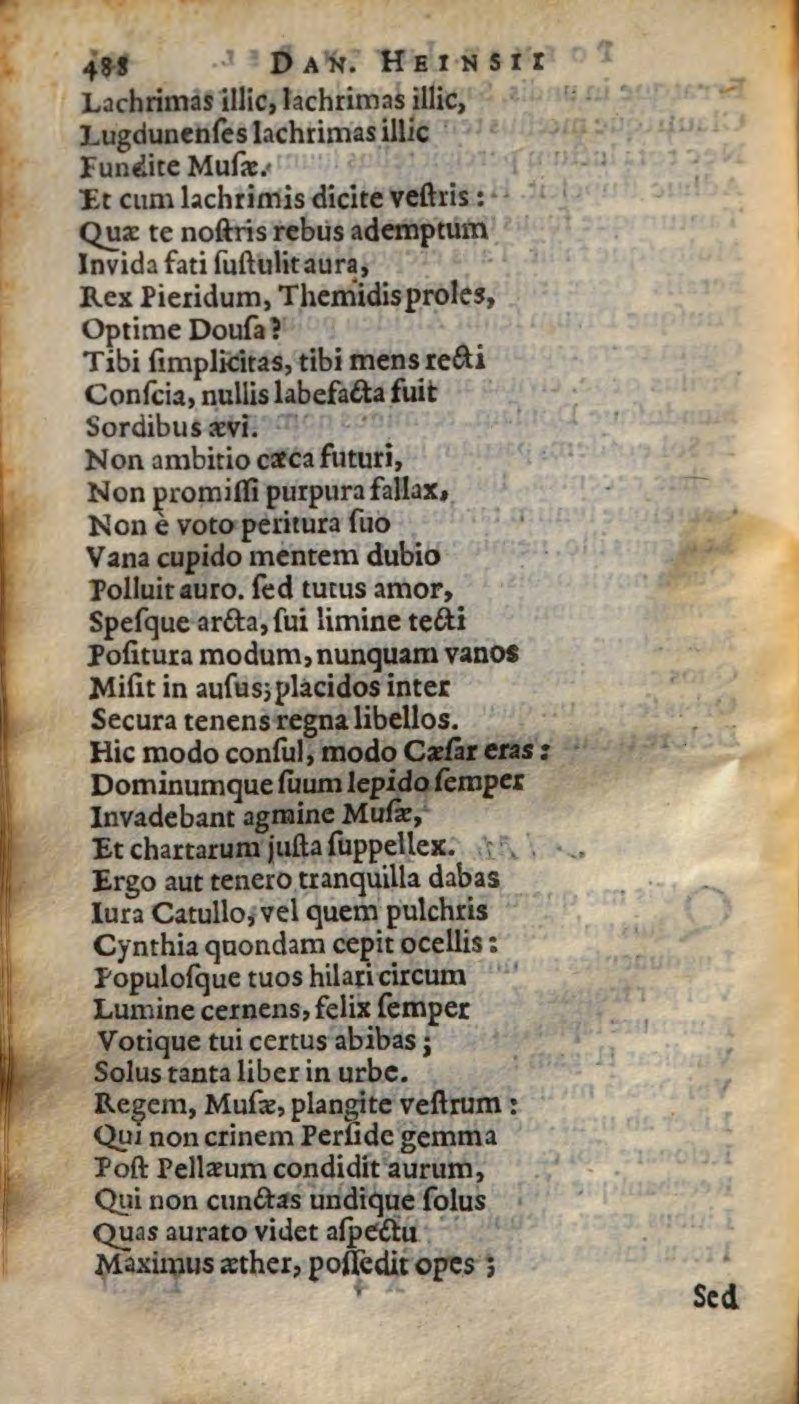 488 DAN. HEINSII
Lachrimas illic, lachrimas illic,
Lugdunenſes lachrimas illic
Fundite Muſæ.
Et cum lachrimis dicite veſtris :
Quæ te noſtris rebus ademptum
Invida fati ſuſtulit aura,
Rex Pieridum, Themidis proles,
Optime Douſa?
Tibi ſimplicitas, tibi mens recti
Conſcia, nullis labefacta fuit
Sordibus ævi.
Non ambitio cæca futuri,
Non promiſſi purpura fallax,
Non è voto peritura ſuo
Vana cupido mentem dubio
Polluit auro. ſed tutus amor,
Speſque arcta, ſui limine tecti
Poſitura modum, nunquam vanos
Miſit in auſus; placidos inter
Secura tenens regna libellos.
Hic modo conſul, modo Cæſar eras :
Dominumque ſuum lepido ſemper
Invadebant agmine Muſæ,
Et chartarum juſta ſuppellex.
Ergo aut tenero tranquilla dabas
Iura Catullo, vel quem pulchris
Cynthia quondam cepit ocellis :
Populoſque tuos hilari circum
Lumine cernens, felix ſemper
Votique tui certus abibas ;
Solus tanta liber in urbe.
Regem, Muſæ, plangite veſtrum :
Qui non crinem Perſide gemma
Poſt Pellæum condidit aurum,
Qui non cunctas undique ſolus
Quas aurato videt aſpectu
Maximus æther, poſſedit opes ;
Sed